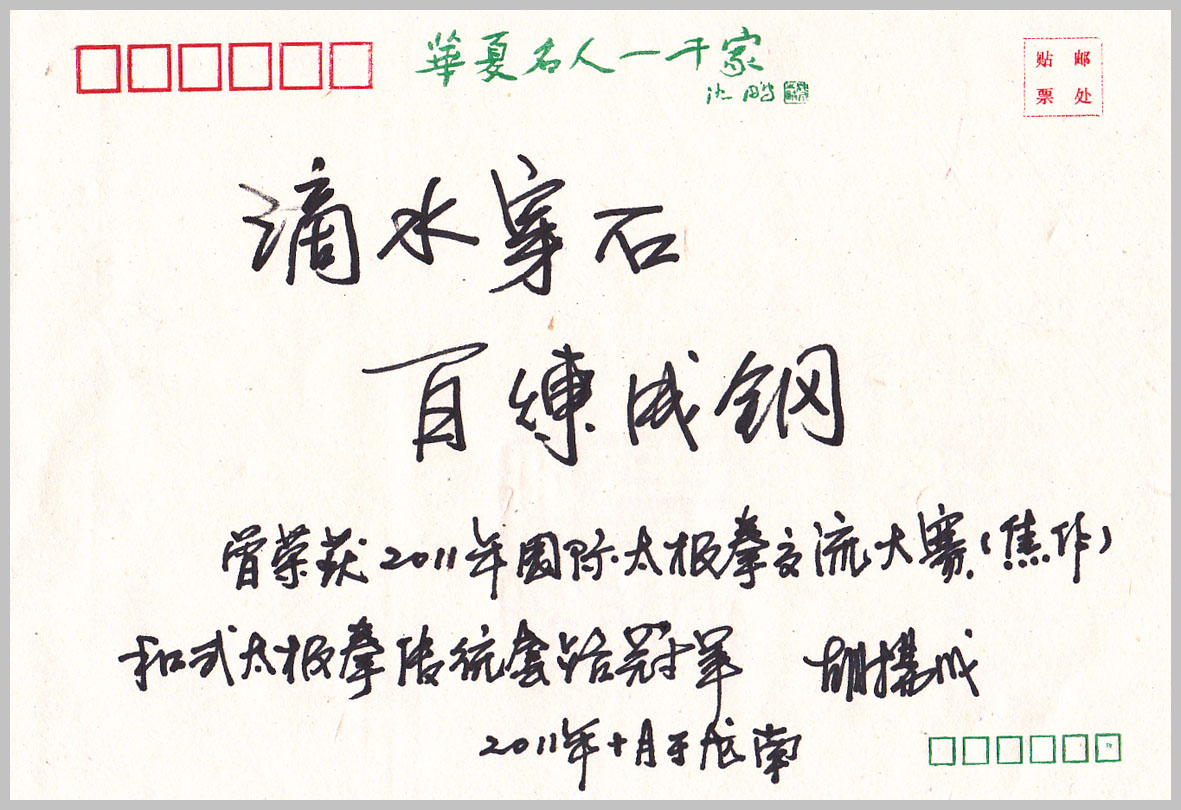 華夏名人一千家
沈鹏
贴 邮
票 处
滴水穿石
百練成钢
曾荣获2011年国际太极拳交流大赛(焦作)
和式太极拳传统套路冠军 胡
2011年十月于